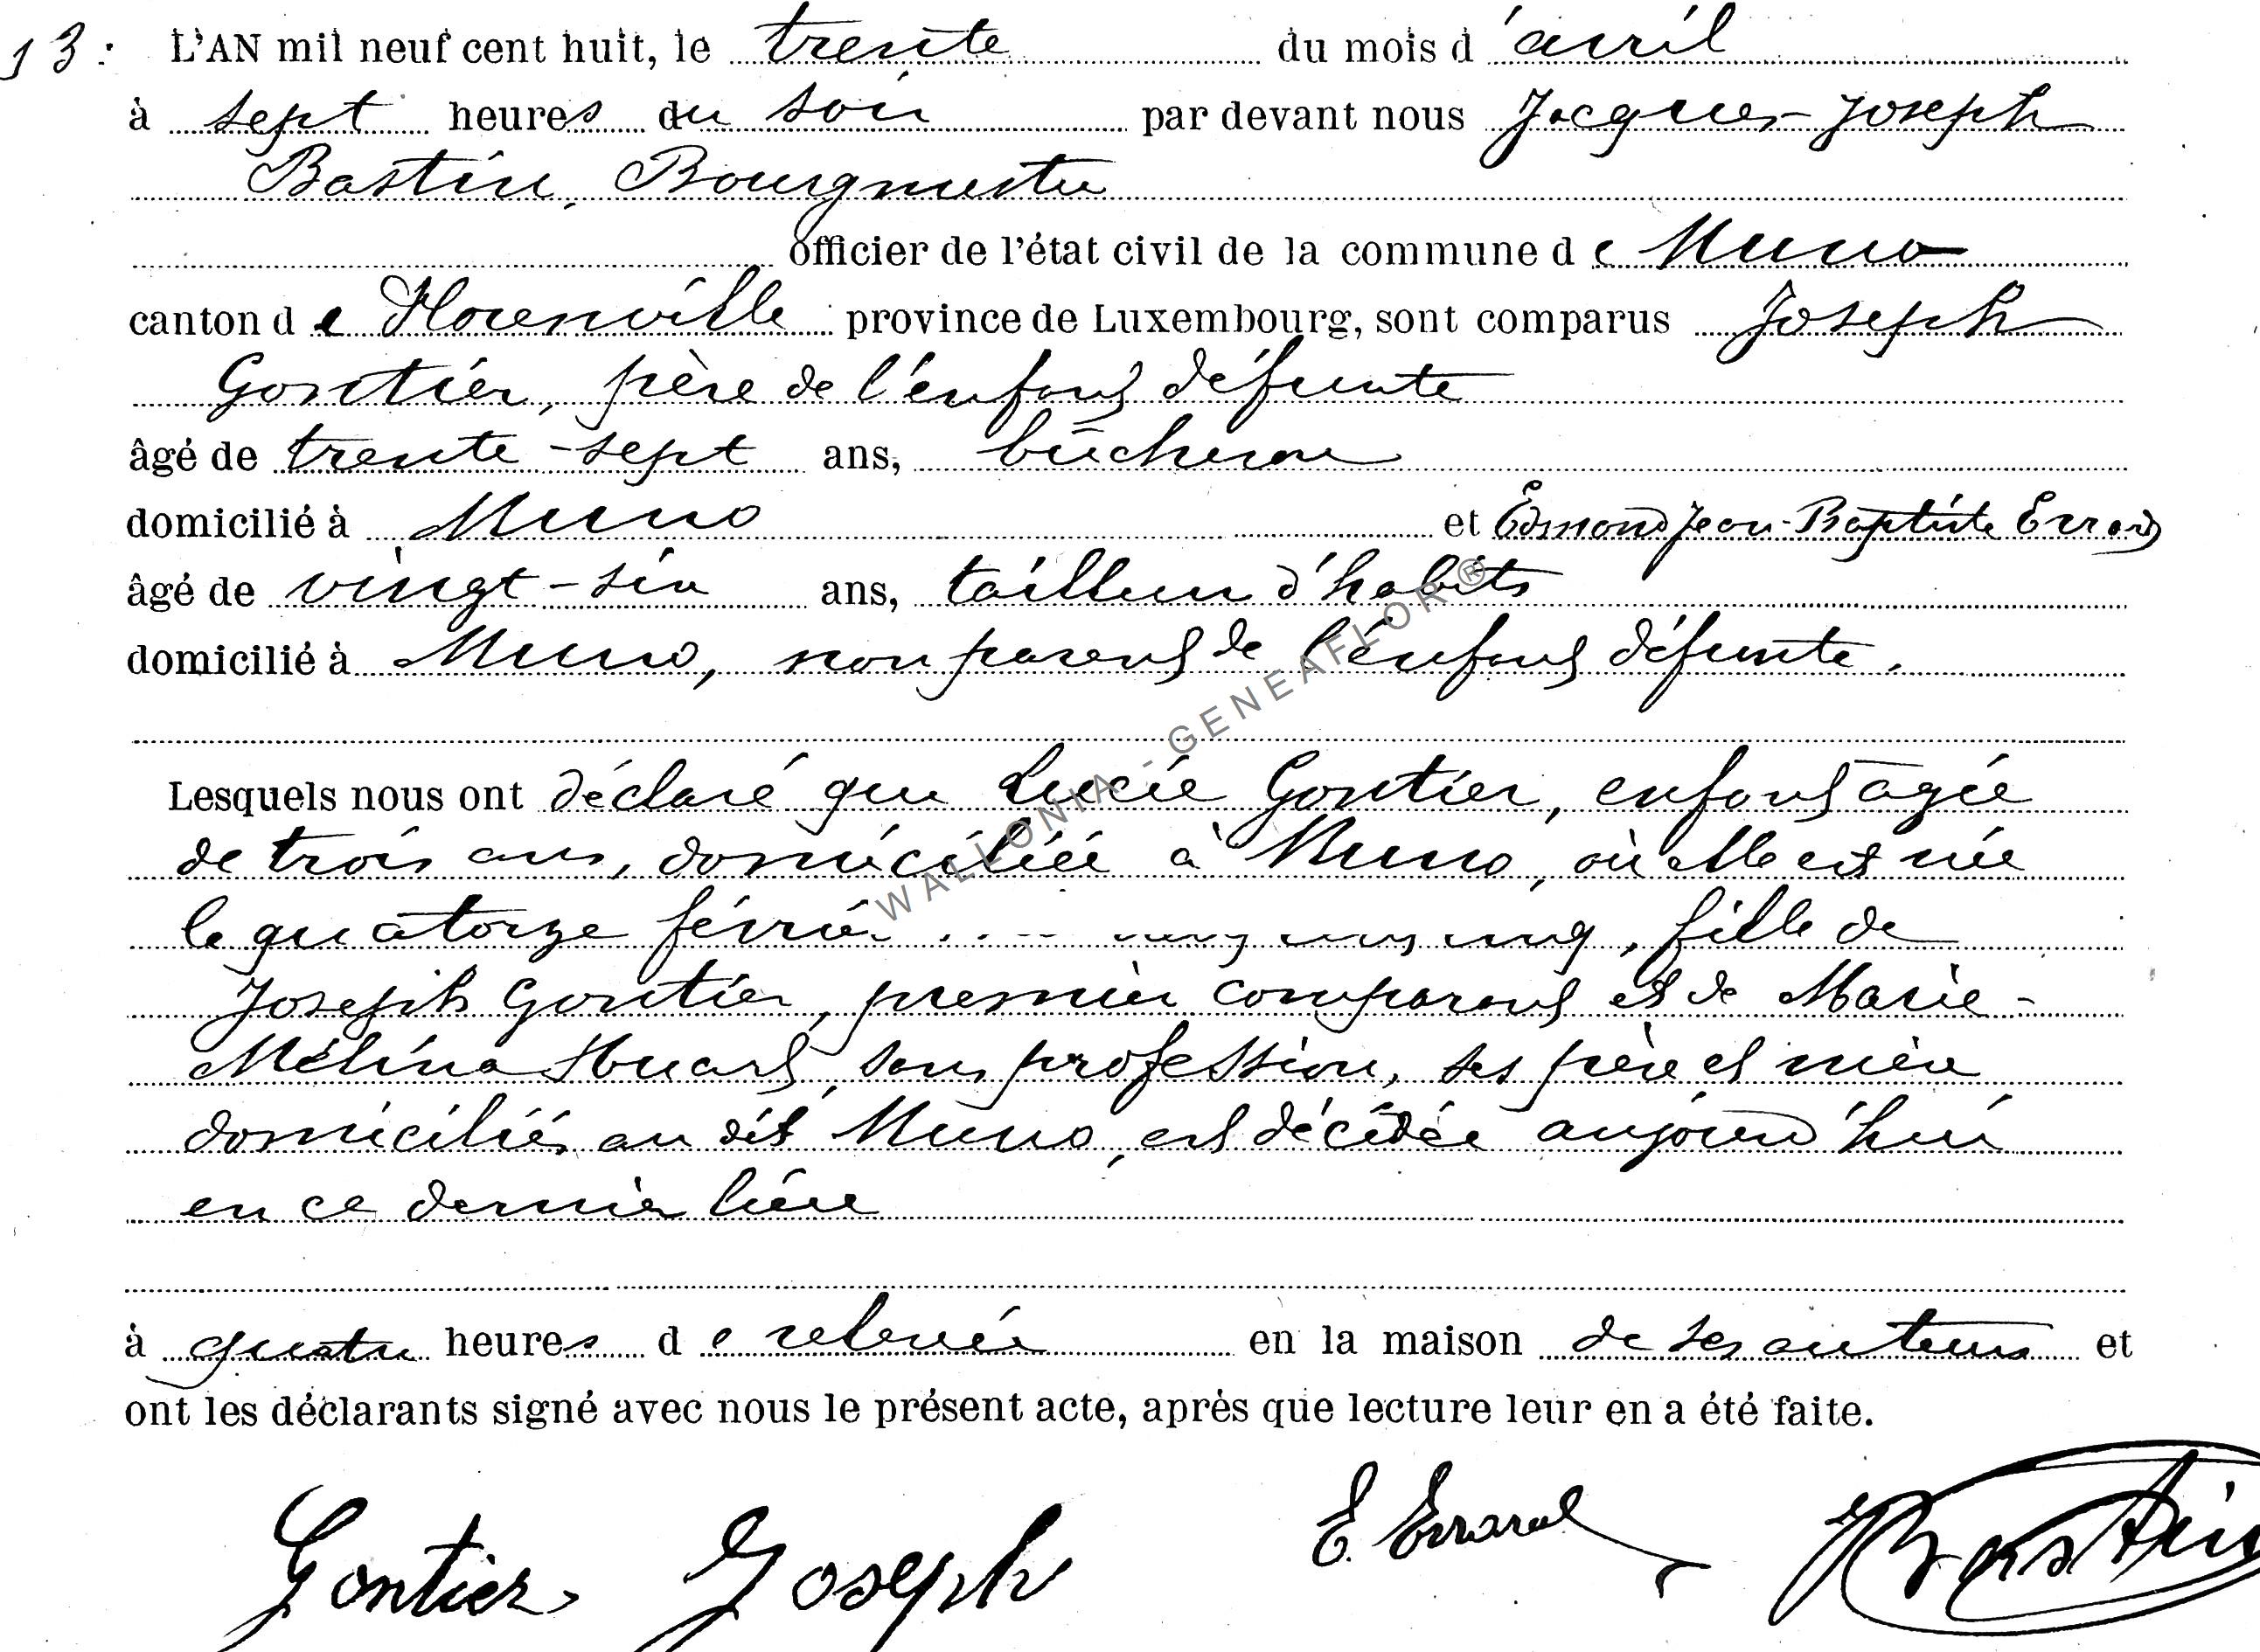 13: L'AN mil neuf cent huit, le trente du mois d'avril
à sept heures du soir par devant nous Jacques-Joseph
Bastin, Bourgmestre
officier de l'état civil de la commune de Muno
canton de Florenville province de Luxembourg, sont comparus Joseph
Gontier, père de l'enfant défunte
âgé de trente-sept ans, bûcheron
domicilié à Muno et Edmond Jean-Baptiste Errard
âgé de vingt-six ans, tailleur d'habits
domicilié à Muno, non parent de l'enfant défunte.
Lesquels nous ont déclaré que Lucie Gontier, enfant âgée
de trois ans, domiciliée à Muno, où elle est née
le quatorze février cinq, fille de
Joseph Gontier, premier comparant et de Marie-
Mélina Huart, sans profession, ses père et mère
domiciliés au dit Muno, est décédée aujourd'hui
en ce dernier lieu
à quatre heures de relevée en la maison de ses auteurs et
ont les déclarants signé avec nous le présent acte, après que lecture leur en a été faite.
Gontier Joseph E. Errard JBastin
WALLONIA - GENEAFLOR ®